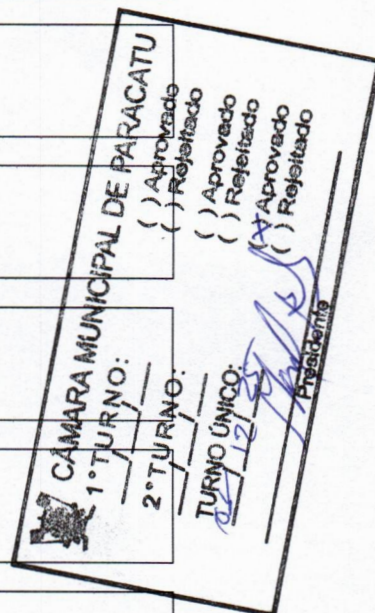 CÂMARA MUNICIPAL DE PARACATU
1º TURNO: ( ) Aprovado
__/__/__ ( ) Rejeitado
2º TURNO: ( ) Aprovado
__/__/__ ( ) Rejeitado
TURNO ÚNICO: (X) Aprovado
02/12/25 ( ) Rejeitado
Presidente